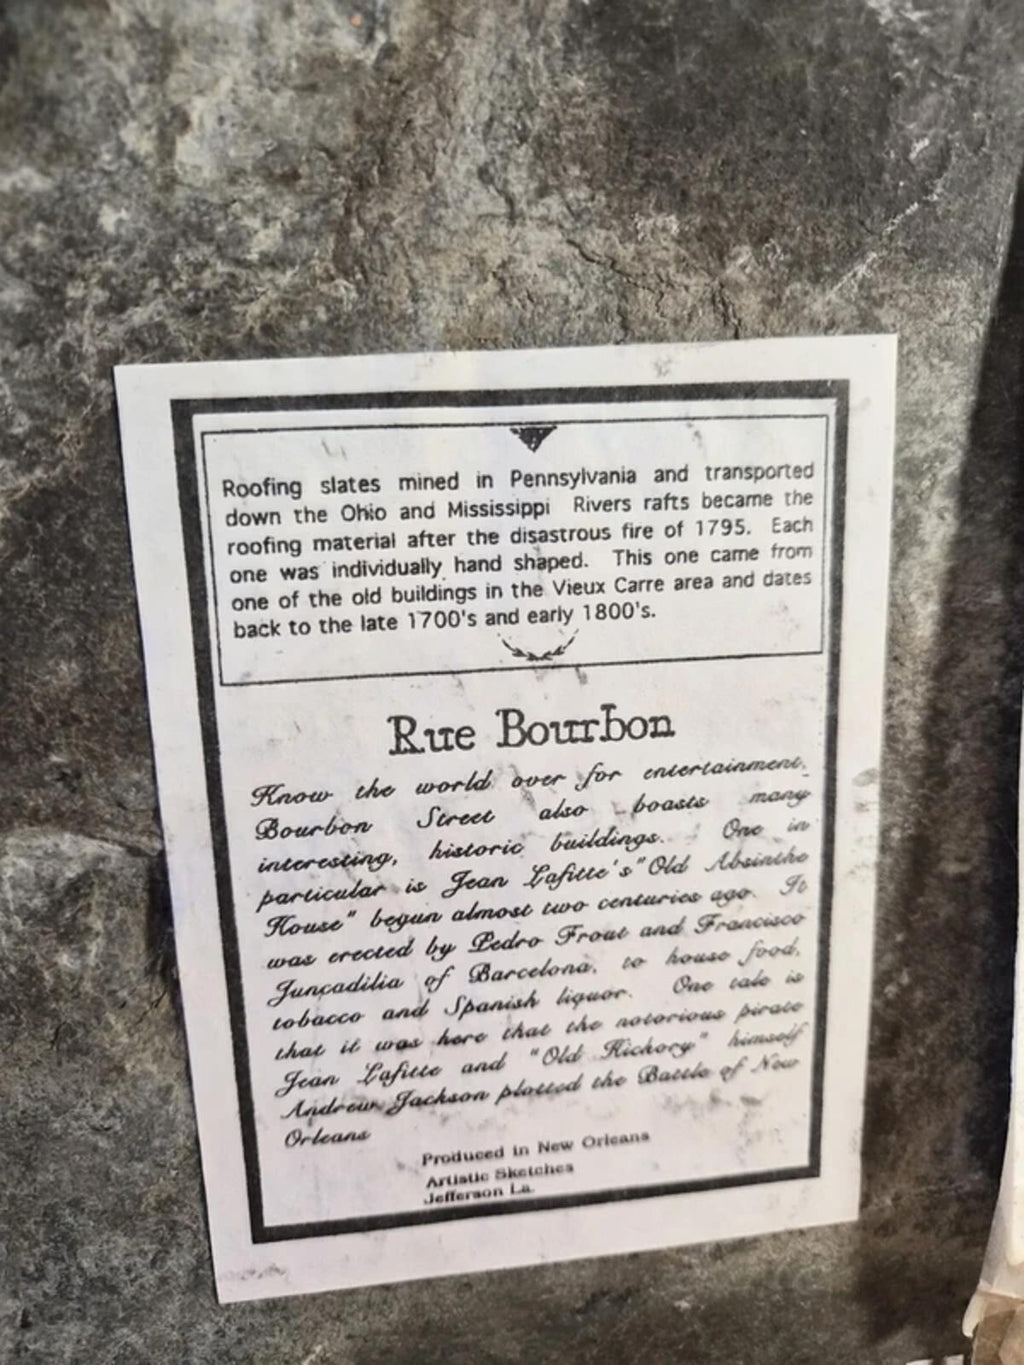 Roofing slates mined in Pennsylvania and transported
down the Ohio and Mississippi Rivers rafts became the
roofing material after the disastrous fire of 1795. Each
one was individually hand shaped. This one came from
one of the old buildings in the Vieux Carre area and dates
back to the late 1700's and early 1800's.
Rue Bourbon
Know the world over for entertainment,
Bourbon Street also boasts many
interesting, historic buildings. One in
particular is Jean Lafitte's "Old Absinthe
House" begun almost two centuries ago. It
was erected by Pedro Frout and Francisco
Juncadilia of Barcelona, to house food,
tobacco and Spanish liquor. One tale is
that it was here that the notorious pirate
Jean Lafitte and "Old Hickory" himself
Andrew Jackson plotted the Battle of New
Orleans
Produced in New Orleans
Artistic Sketches
Jefferson La.